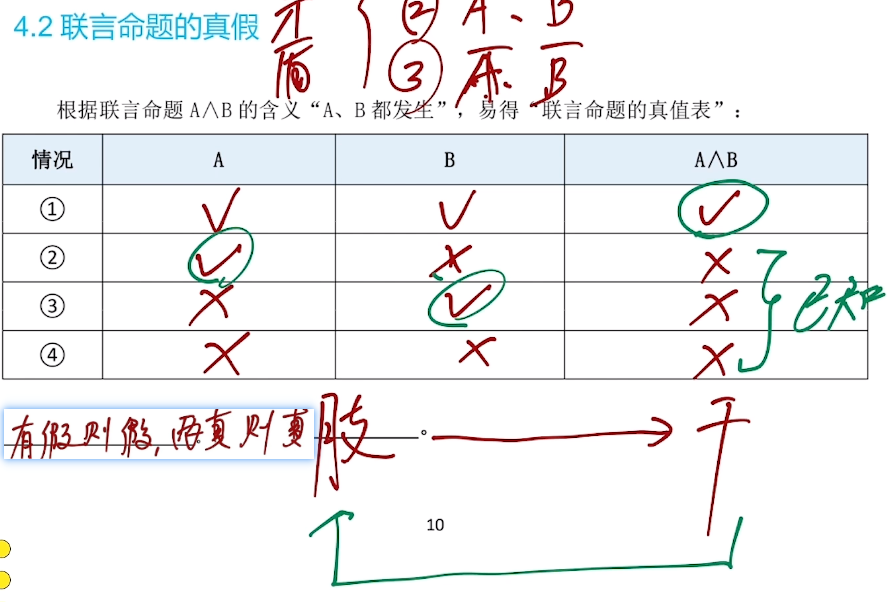 4.2 联言命题的真假
矛盾
② A、B
③ A、B
根据联言命题 A∧B 的含义“A、B 都发生”，易得“联言命题的真值表”：
情况 A B A∧B
① ✓ ✓ ✓
② ✓ × ×
③ × ✓ ×
④ × × ×
已知
有假则假，两真则真 肢 。 → 干
10